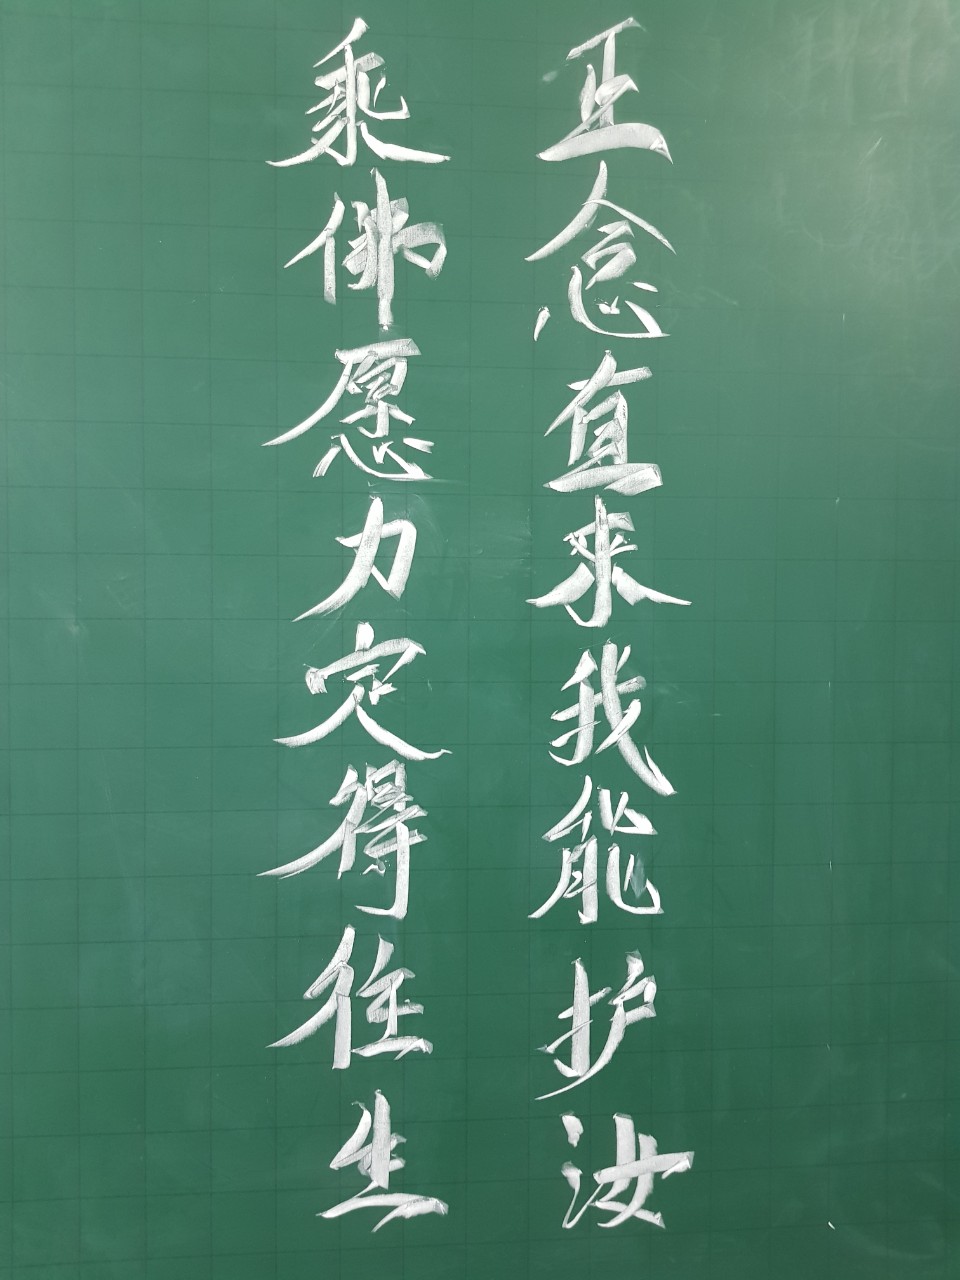 正念直来我能护汝
乘佛愿力定得往生